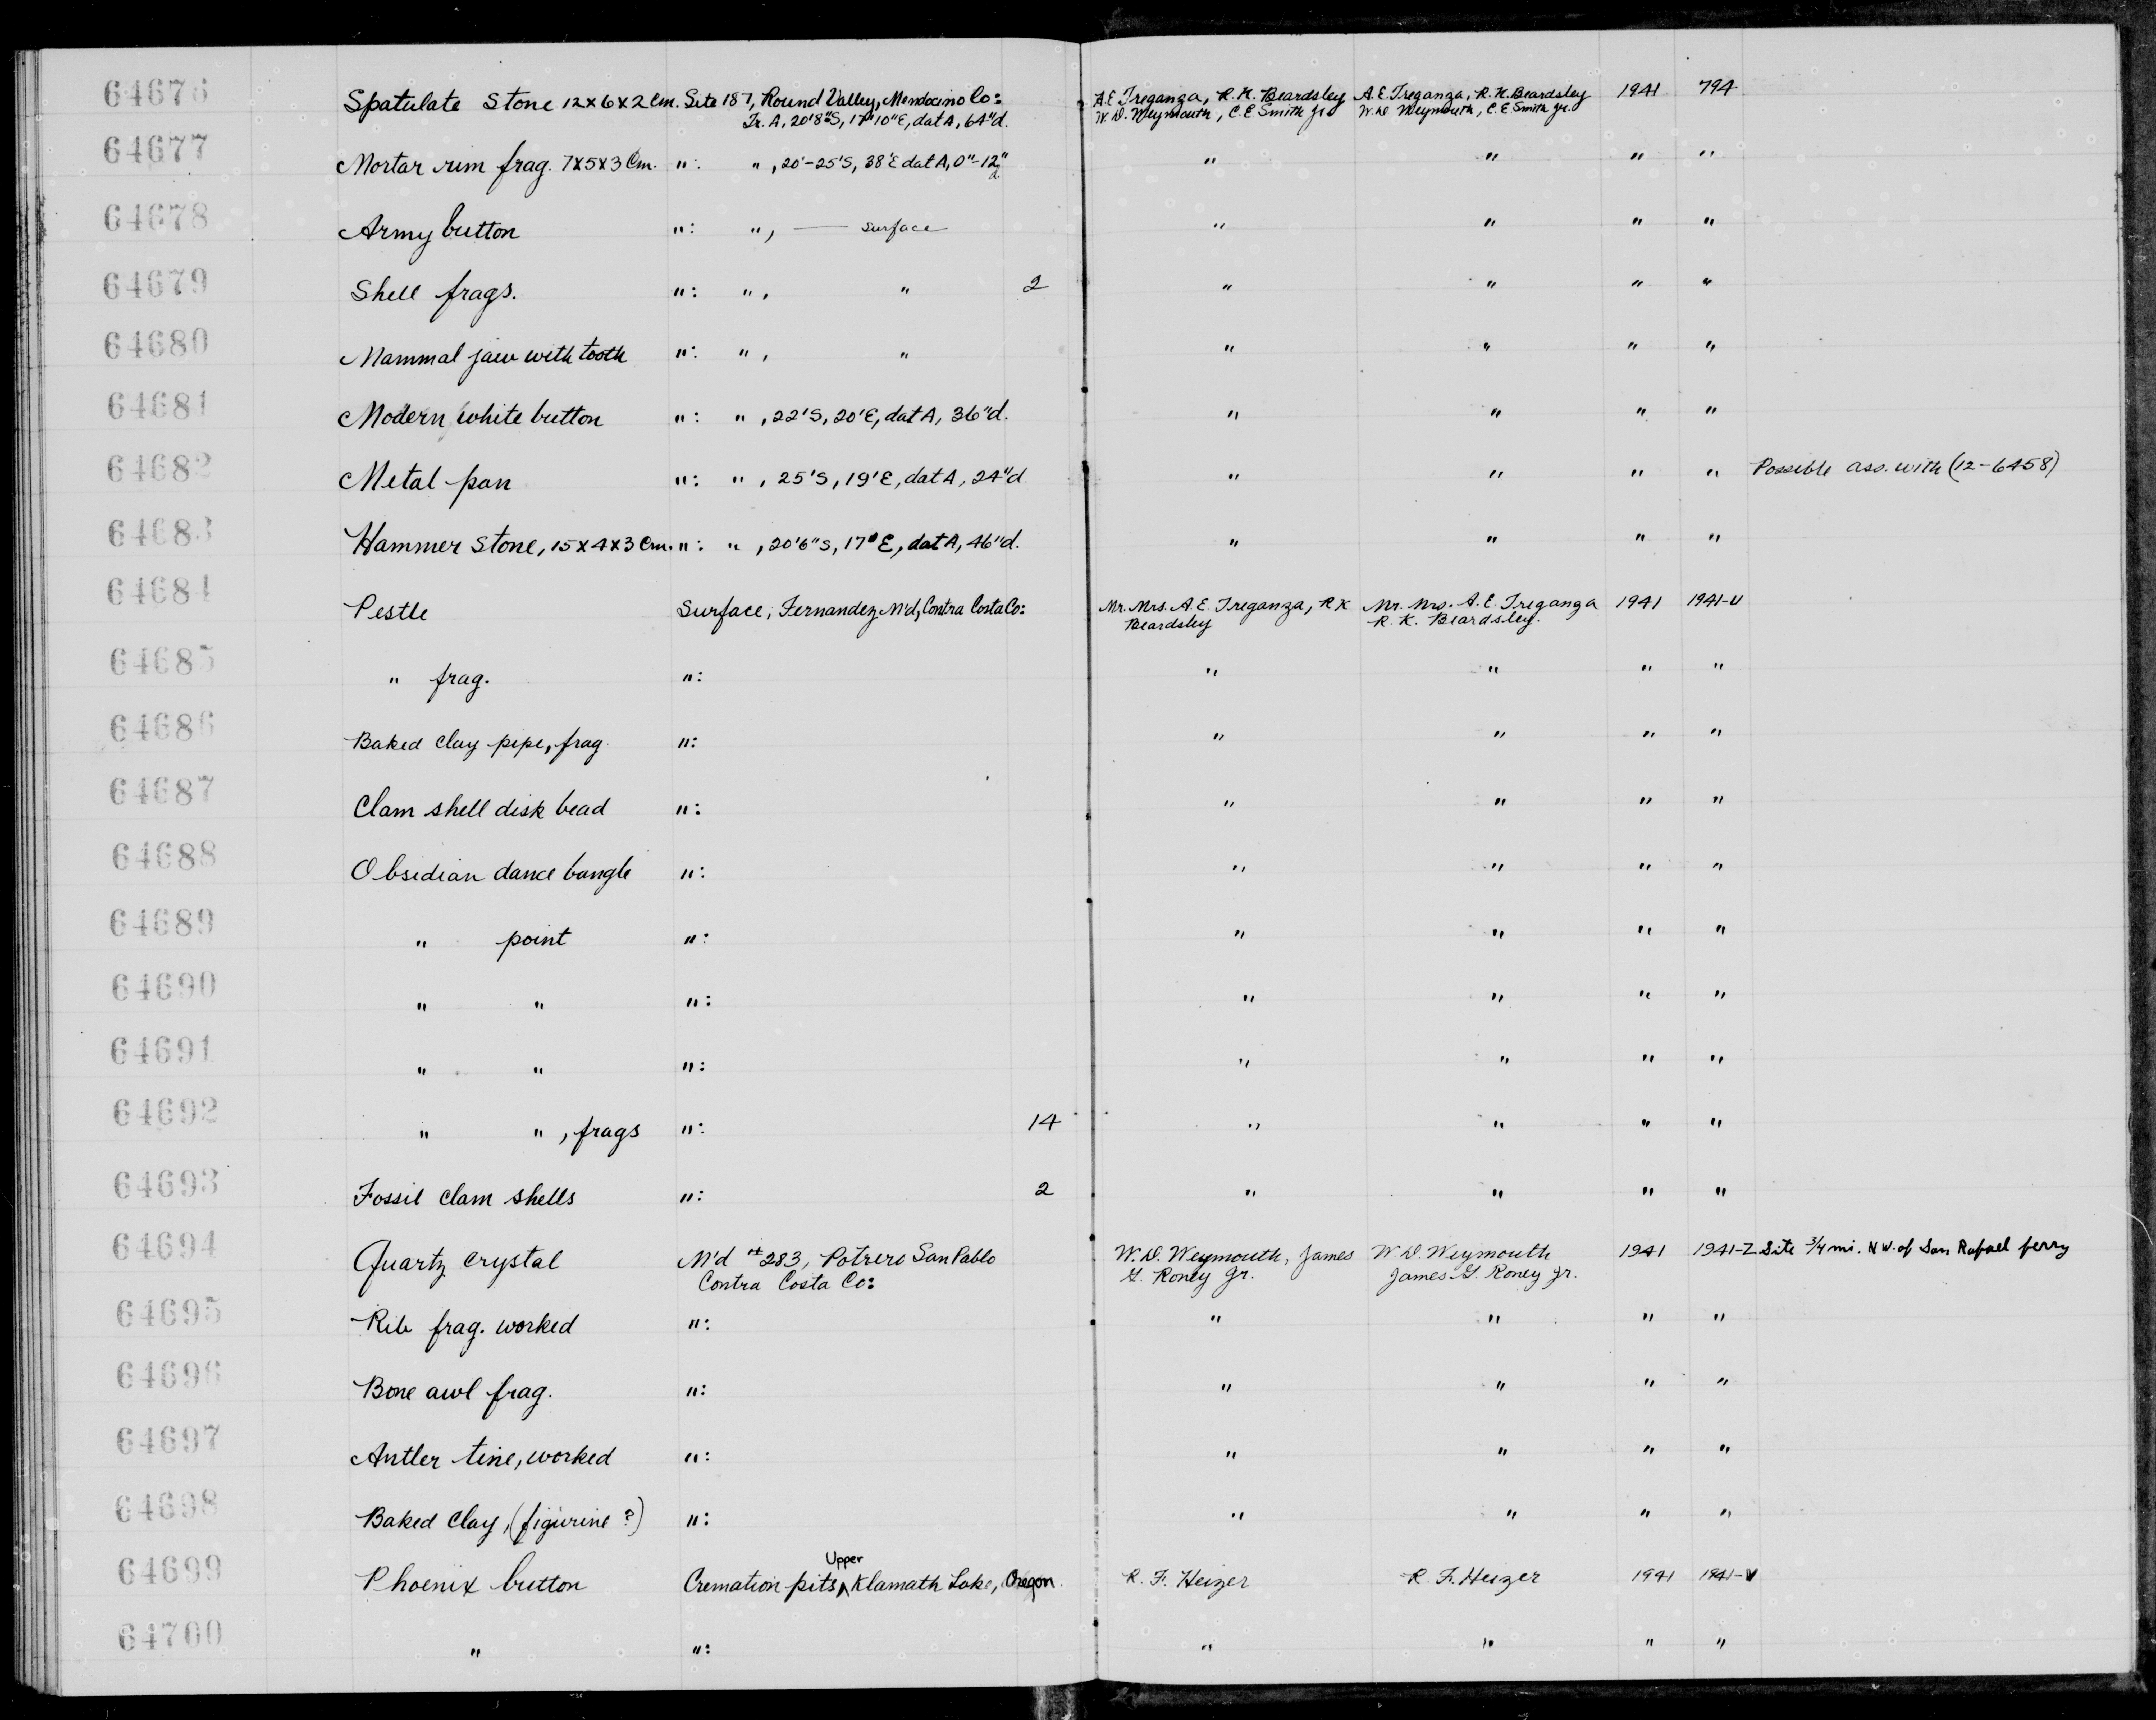 64676 Spatulate Stone 12x6x2 Cm. Site 187, Round Valley, Mendocino Co: A.E. Treganza, R.K. Beardsley A.E. Treganza, R.K. Beardsley 1941 794
Tr. A, 20'8"S, 17'10"E, dat A, 64"d. W.D. Weymouth, C.E. Smith Jr. W.D. Weymouth, C.E. Smith Jr.
64677 Mortar rim frag. 7x5x3 Cm. ": " , 20'-25'S, 38'E dat A, 0"-12" d. " " " "
64678 Army button ": ", — surface " " " "
64679 Shell frags. ": ", " 2 " " " "
64680 Mammal jaw with tooth ": ", " " " " "
64681 Modern white button ": " , 22'S, 20'E, dat A, 36"d. " " " "
64682 Metal pan ": " , 25'S, 19'E, dat A, 24"d " " " " Possible ass. with (12-6458)
64683 Hammer stone, 15x4x3 Cm. ": " , 20'6"S, 17'E, dat A, 46"d. " " " "
64684 Pestle Surface, Fernandez M'd, Contra Costa Co: Mr. Mrs. A.E. Treganza, R K Mr. Mrs. A.E. Treganza 1941 1941-U
Beardsley R. K. Beardsley.
64685 " frag. ": " " " "
64686 Baked clay pipe, frag. ": " " " "
64687 Clam shell disk bead ": " " " "
64688 Obsidian dance bangle ": " " " "
64689 " point ": " " " "
64690 " " ": " " " "
64691 " " ": " " " "
64692 " " , frags ": 14 " " " "
64693 Fossil clam shells ": 2 " " " "
64694 Quartz crystal M'd #283, Potrero San Pablo W.D. Weymouth, James W.D. Weymouth 1941 1941-Z Site 3/4 mi. NW. of San Rafael ferry
Contra Costa Co: G. Roney Jr. James G. Roney Jr.
64695 Rib frag. worked ": " " " "
64696 Bone awl frag. ": " " " "
64697 Antler tine, worked ": " " " "
64698 Baked clay, (figurine ?) ": " " " "
64699 Phoenix button Cremation pits, Upper Klamath Lake, Oregon. R. F. Heizer R. F. Heizer 1941 1941-V
64700 " ": " " " "